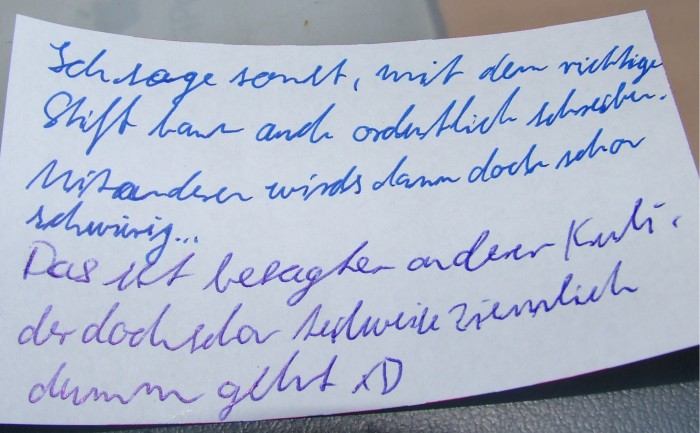 Ich sage sonst, mit dem richtige
Stift kann auch ordentlich schreiben.
Mit anderen wirds dann doch schon
schwirig...
Das ist besagter anderer Kuli,
der doch schon teilweise ziemlich
dumm geht xD